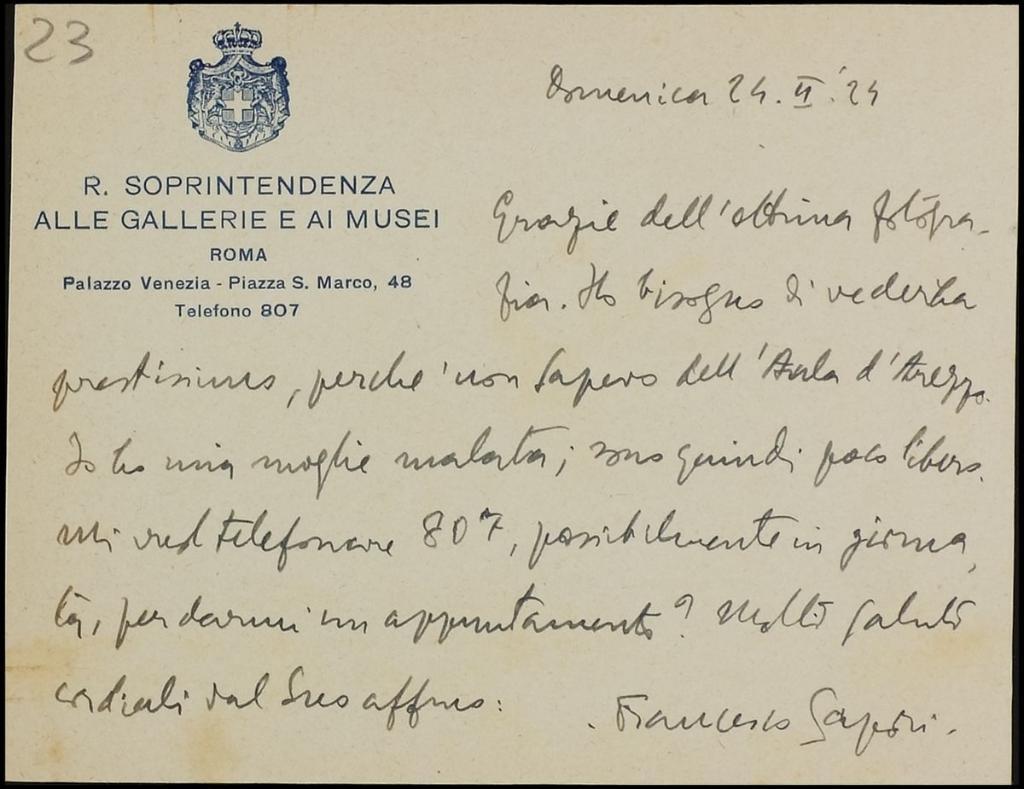 23
Domenica 24. II. '24
R. SOPRINTENDENZA
ALLE GALLERIE E AI MUSEI
ROMA
Palazzo Venezia - Piazza S. Marco, 48
Telefono 807
Grazie dell'ottima fotogra-
fia. Ho bisogno di vederla
prestissimo, perché non sapevo dell'Aula d'Arezzo.
Io ho mia moglie malata; sono quindi poco libero.
Mi vuol telefonare 807, possibilmente in giorna-
ta, per darmi un appuntamento? Molti saluti
cordiali dal Suo affmo:
Francesco Sapori.